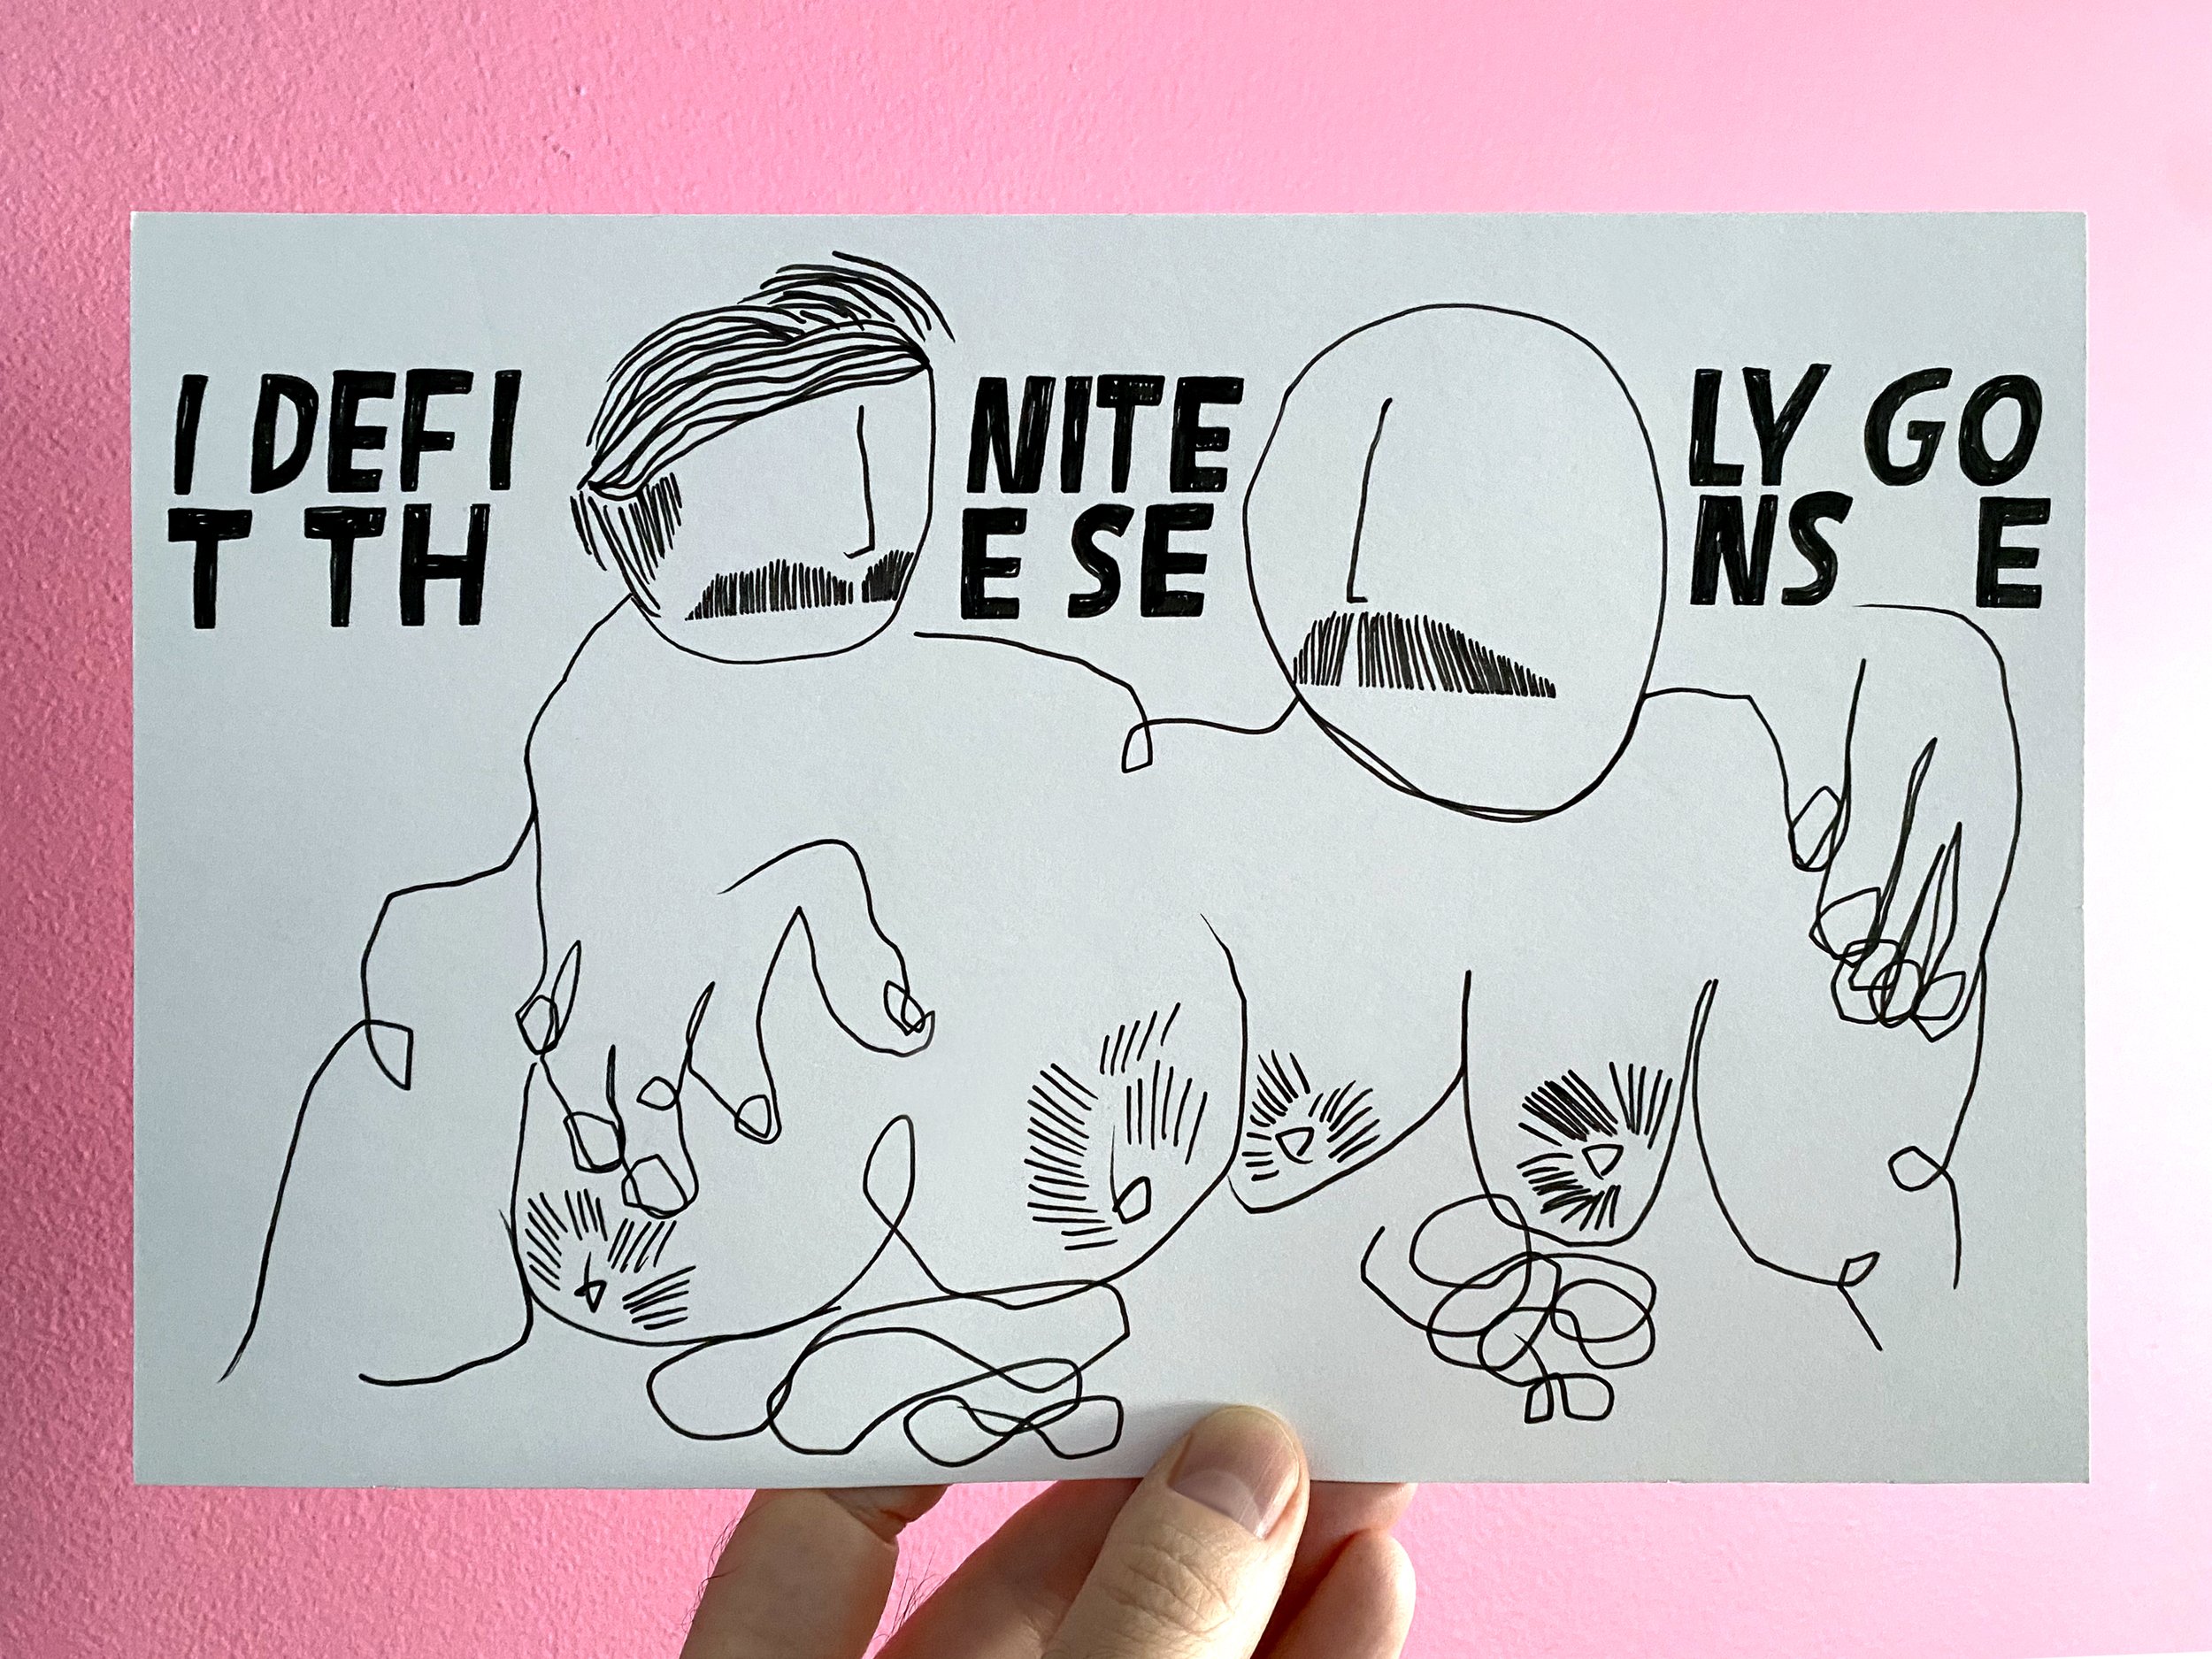 I DEFI NITE LY GO
T TH E SE NS E